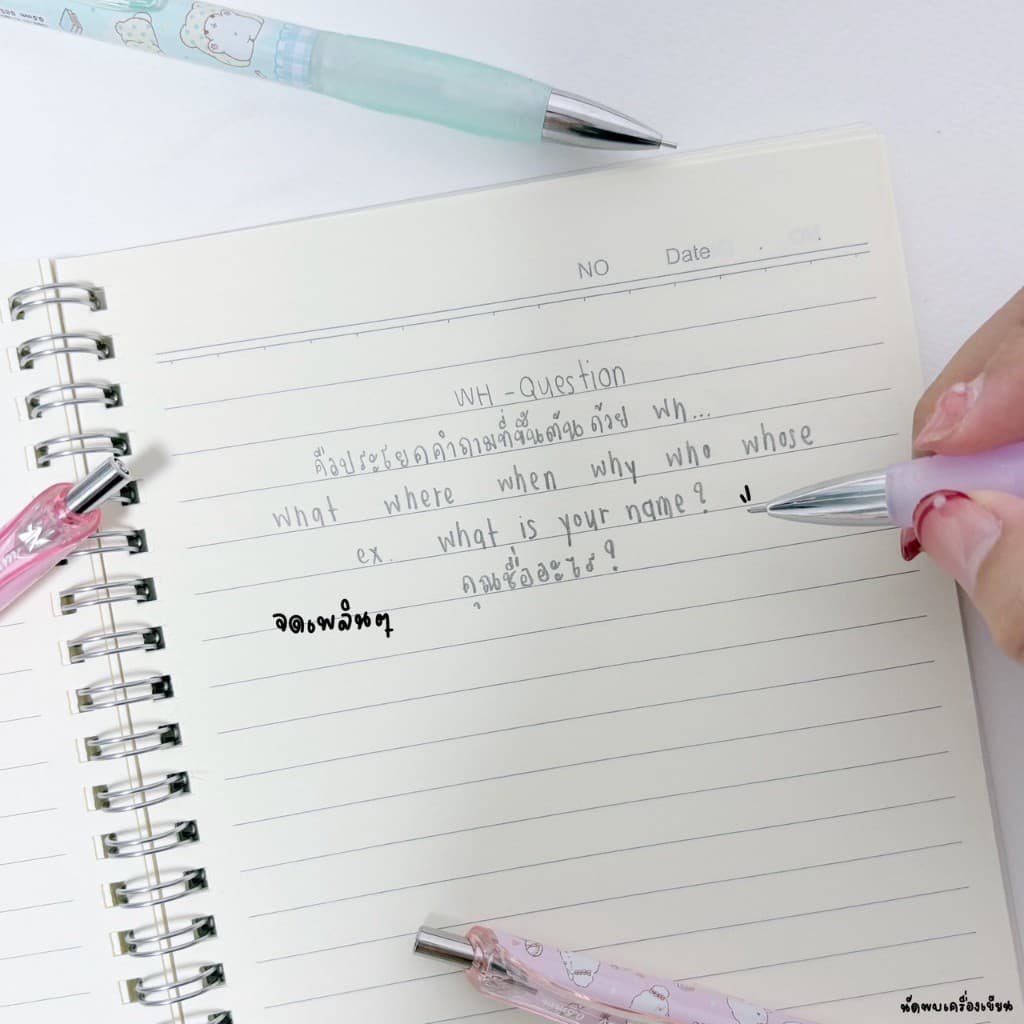 NO Date
WH - Question
คือประโยคคำถามที่ขึ้นต้นด้วย wh...
what where when why who whose
ex. what is your name?
คุณชื่ออะไร?
จดเพลินๆ
นัดพบเครื่องเขียน